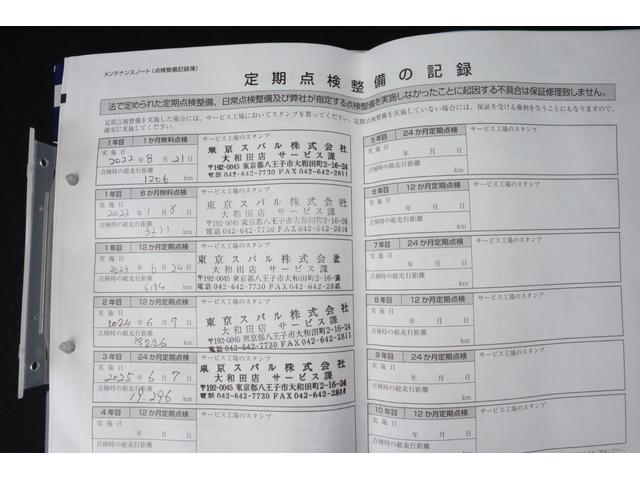 メンテナンスノート(点検整備記録簿)
定期点検整備の記録
法で定められた定期点検整備、日常点検整備及び弊社が指定する点検整備を実施しなかったことに起因する不具合は保証修理致しません。
定期点検整備を実施した場合には、サービス工場においてスタンプを買ってください。定期点検整備を実施していない場合には、保証を受ける権利を失うこともなりますので、
確実に実施してください。
1年目 1か月無料点検 サービス工場のスタンプ
実施日 2022年8月21日
点検時の総走行距離
1206 km
東京スバル株式会社
大和田店 サービス課
〒192-0045 東京都八王子市大和田町2-16-24
電話 042-642-7730 FAX 042-642-2811
1年目 6か月無料点検 サービス工場のスタンプ
実施日
2023年1月8日
点検時の総走行距離
km
東京スバル株式会社
大和田店 サービス課
〒192-0045 東京都八王子市大和田町2-16-24
電話 042-642-7730 FAX 042-642-2811
1年目 12か月定期点検 サービス工場のスタンプ
実施日
2023年6月24日
点検時の総走行距離
km
東京スバル株式会社
大和田店 サービス課
〒192-0045 東京都八王子市大和田町2-16-24
電話 042-642-7730 FAX 042-642-2811
2年目 12か月定期点検 サービス工場のスタンプ
実施日
2024年6月9日
点検時の総走行距離
km
東京スバル株式会社
大和田店 サービス課
〒192-0045 東京都八王子市大和田町2-16-24
電話 042-642-7730 FAX 042-642-2811
3年目 24か月定期点検 サービス工場のスタンプ
実施日
2025年6月7日
点検時の総走行距離
18,296 km
東京スバル株式会社
大和田店 サービス課
〒192-0045 東京都八王子市大和田町2-16-24
電話 042-642-7730 FAX 042-642-2811
4年目 12か月定期点検 サービス工場のスタンプ
実施日
年 月 日
点検時の総走行距離
km
5年目 24か月定期点検 サービス工場のスタンプ
実施日
年 月 日
点検時の総走行距離
km
6年目 12か月定期点検 サービス工場のスタンプ
実施日
年 月 日
点検時の総走行距離
km
7年目 24か月定期点検 サービス工場のスタンプ
実施日
年 月 日
点検時の総走行距離
km
8年目 12か月定期点検 サービス工場のスタンプ
実施日
年 月 日
点検時の総走行距離
km
9年目 24か月定期点検 サービス工場のスタンプ
実施日
年 月 日
点検時の総走行距離
km
10年目 12か月定期点検 サービス工場のスタンプ
実施日
年 月 日
点検時の総走行距離
km